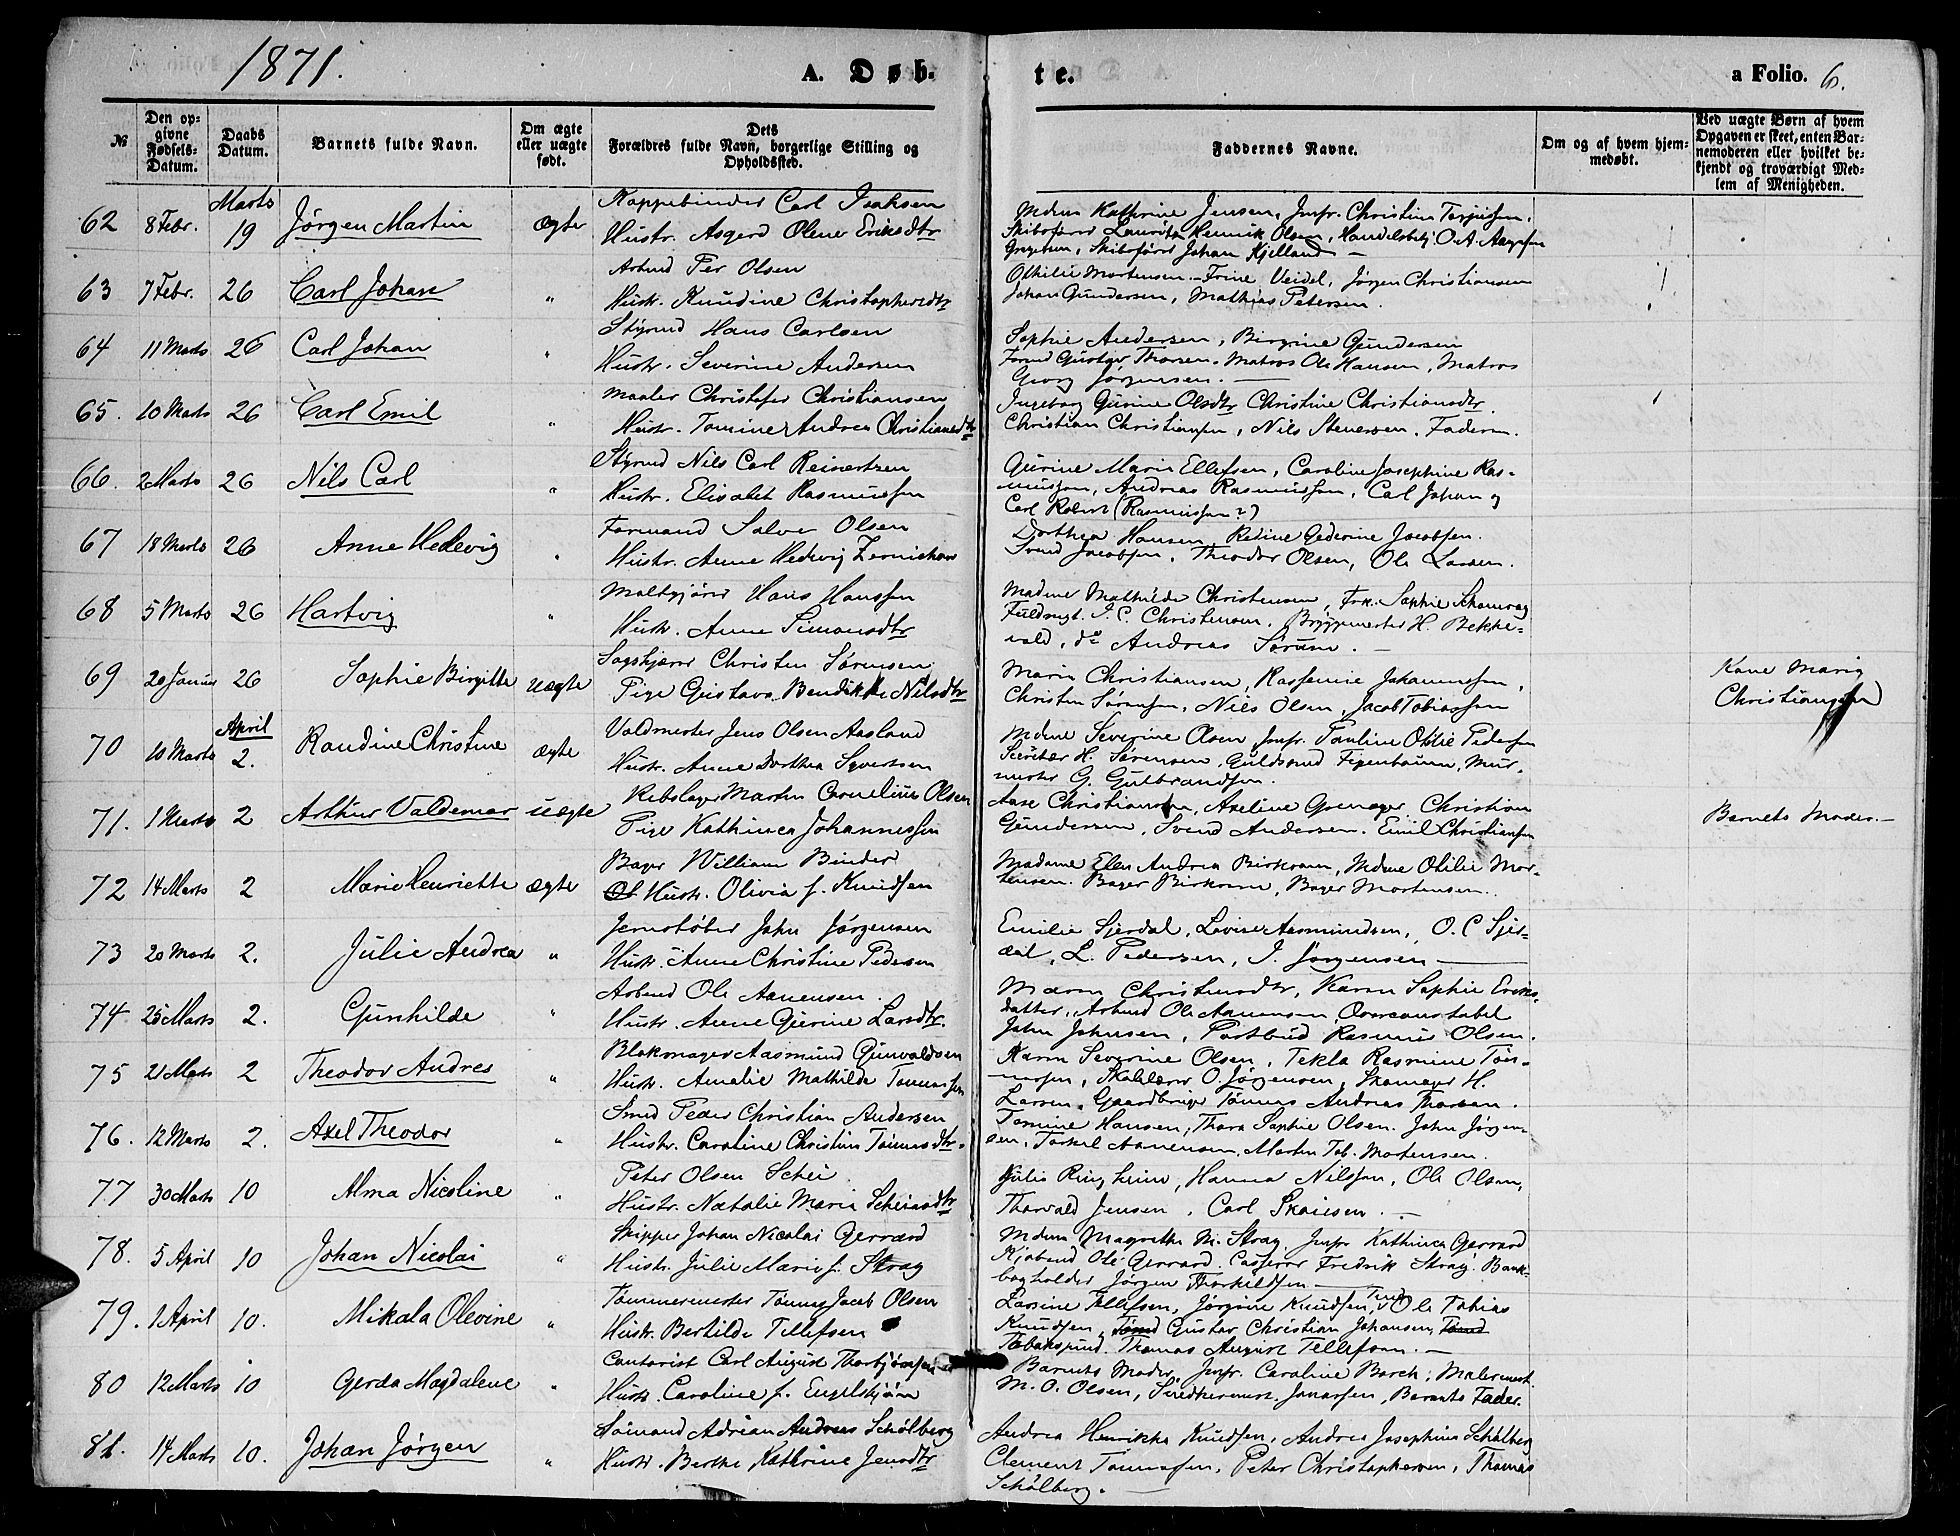 1871.
A. Døb-
te.
a Folio. 6.
№
Den op-
givne
Fødsels-
Datum.
Daabs
Datum.
Barnets fulde Navn.
Om ægte
eller uægte
født.
Dets
Forældres fulde Navn, borgerlige Stilling og
Opholdssted.
Faddernes Navne.
Om og af hvem hjem-
medøbt.
Ved uægte Børn af hvem
Opgaven er skeet, enten Bar-
nemoderen eller hvilket be-
kjendt og troværdigt Med-
lem af Menigheden.
62 8 Febr. Marts 19 Jørgen Martin ægte
Carl Isaksen
Hustr. Asgerd Olene Eriksdtr
Mdme Kathrine Jensen, Jmfr. Christine Terjesen,
Skibsfører Lauritz Henrik Olsen, O. A. Aagesen
Skibsfører Johan Kjelland —
63 7 Febr. 26 Carl Johan "
Arbmd Per Olsen
Hustr. Knudine Christophersdtr
Othilie Mortensen, Trine Veidel, Jørgen Christiansen
Johan Gundersen, Mathias Petersen.
64 11 Marts 26 Carl Johan "
Styrmd Hans Carlsen
Hustr. Severine Andersen
Sophie Andersen, Birgine Gundersen
Gustav Thorsen, Matros Ole Hansen, Matros
Georg Jørgensen. —
65. 10 Marts 26 Carl Emil "
Maaler Christofer Christiansen
Hustr. Tomine Andrea Christiansdtr
Ingeborg Gurine Olsdtr Christine Christiansdtr.
Christian Christiansen, Nils Stenersen. Faderen.
66. 2 Marts 26 Nils Carl "
Styrmd Nils Carl Reinertzen
Hustr. Elisabet Rasmussen
Gurine Marie Ellefsen, Caroline Josephine Ras-
mussen, Andreas Rasmussen, Carl Johan og
Carl Robert (Rasmussen?)
67 18 Marts 26 Anne Hedevig "
Formand Salve Olsen
Hustr. Anne Hedevig Zernichow
Dorthea Hansen, Redine Gederine Jacobsen.
Svend Jacobsen, Theodor Olsen, Ole Larsen.
68 5 Marts 26 Hartvig "
Maltgjører Hans Hansen
Hustr. Anne Simonsdtr
Madme Mathilde Christensen, Frk. Sophie
Fuldmgt. I. C. Christensen, Bryggmester H. Bekke-
vold, do Andreas Sørum. —
69 20 Januar 26 Sophie Birgitte uægte
Sagskjærer Christen Sørensen
Pige Gustava Bendikte Nilsdtr
Marie Christiansen, Rassemie Johannessen,
Christen Sørensen, Nils Olsen, Jacob Tobiassen
Kone Marie
Christiansen
70 10 Marts April 2. Randine Christine ægte
Valdmester Jens Olsen Aasland
Hustr. Anne Dorthea Syvertsen
Mdme Severine Olsen Jmfr. Pauline Otilie Pedersen
H. Sørensen, Guldsmd Figenbaum, Mur-
mester G. Gulbrandsen.
71. 1 Marts 2 Arthur Valdemar uægte
Rebslager Martin Cornelius Olsen
Pige Kathinca Johannessen
Aase Christiansen, Axeline Grenager Christian
Gundersen, Svend Andersen. Emil Christiansen
Barnets Moder.—
72 14 Marts 2 Marie Henriette ægte
Bager William Binder
Hustr. Olivia f. Knudsen
Madame Elen Andrea Birkrem, Mdme Otilie Mor-
tensen. Bager Birkrem, Bager Mortensen.
73 20 Marts 2. Julie Andrea "
Jernstøber John Jørgensen
Hustr. Anne Christine Pedersen
Emilie Sjerdal, Lovise Aasmundsen, O. C Sjer-
dal, L. Pedersen, J. Jørgensen —
74 25 Marts 2. Gunhilde "
Arbmd Ole Aanensen.
Hustr. Anne Gurine Larsdtr.
Maren Christensdtr, Karen Sophie Eriks-
datter, Arbmd Ole Aanensen, Overconstabel
John Johnsen, Postbud Rasmus Olsen.
75 21 Marts 2 Theodor Andres "
Blokmager Aasmund Gunvaldsen
Hustr. Amalie Mathilde Tønnessen
Karen Severine Olsen, Tekla Rasmine Tøn-
nessen, Skolelærer O. Jørgensen, Skomager H.
Larsen, Gaardbruger Tønnes Andreas Thorsen.
76. 12 Marts 2. Axel Theodor "
Smed Peder Christian Andersen
Hustr. Caroline Christine Tønnesdtr.
Tomine Hansen, Thora Sophie Olsen. John Jørgen-
sen, Torkel Aanensen, Martin Tob. Mortensen.
77 30 Marts 10 Alma Nicoline "
Peter Olsen Schei
Hustr. Natalie Marie
Julie Ringheim, Hanna Nilsson, Ole Olsen,
Thorvald Jensen, Carl —
78. 5 April 10 Johan Nicolai "
Skipper Johan Nicolai Gerrard
Hustr. Julie Marie f. Stray
Mdme Magrethe M. Stray, Jmfr Kathinca Gerrard
Kjøbmd Ole Gerrard. Casserer Fredrik Stray. Bank-
bogholder Jørgen Thorkildsen —
79. 1 April 10. Mikala Olevine "
Tømmermester Tønnes Jacob Olsen
Hustr. Bertilde Tellefsen
Larsine Tellefsen, Jørgine Knudsen, Ole Tobias
Knudsen, Gustav Christian Johansen,
Tobakspind. Thomas August Tellefsen. —
80 12 Marts 10 Gerda Magdalene "
Contorist Carl August Thorbjørnsen
Hustr. Caroline f. Engelskjøn
Barnets Moder, Jmfr. Caroline Barch; Malermest.
M. O. Olsen, Snedkermest. Jonassen, Barnets Fader.
81. 14 Marts 10. Johan Jørgen "
Sømand Adrian Andreas Schølberg
Hustr. Berthe Kathrine Jensdtr
Andrea Henrikke Knudsen, Andrea Josephine Schølberg
Clement Tønnessen, Peter Christophersen, Thomas
Schølberg. —